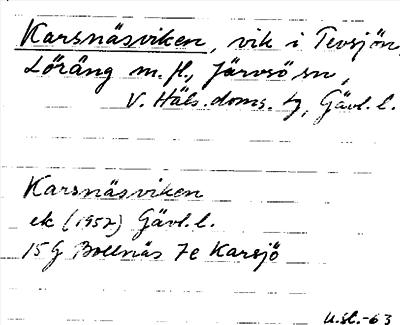 Karsnäsviken, vik i Tevsjön,
Löräng m. fl., Järvsö sn,
V. Häls. doms. tg, Gävl. l.
Karsnäsviken
ek (1957) Gävl. l.
15G Bollnäs 7e Karsjö
U.st.-63